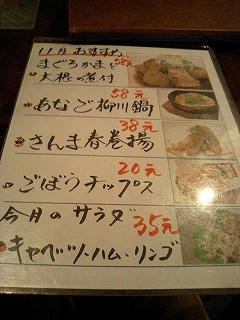 11月おすすめ
まぐろかまと 58元
大根の煮付
58元
あなご柳川鍋
38元
さんま春巻揚
20元
ごぼうチップス
今月のサラダ 35元
キャベツ・ハム・リンゴ